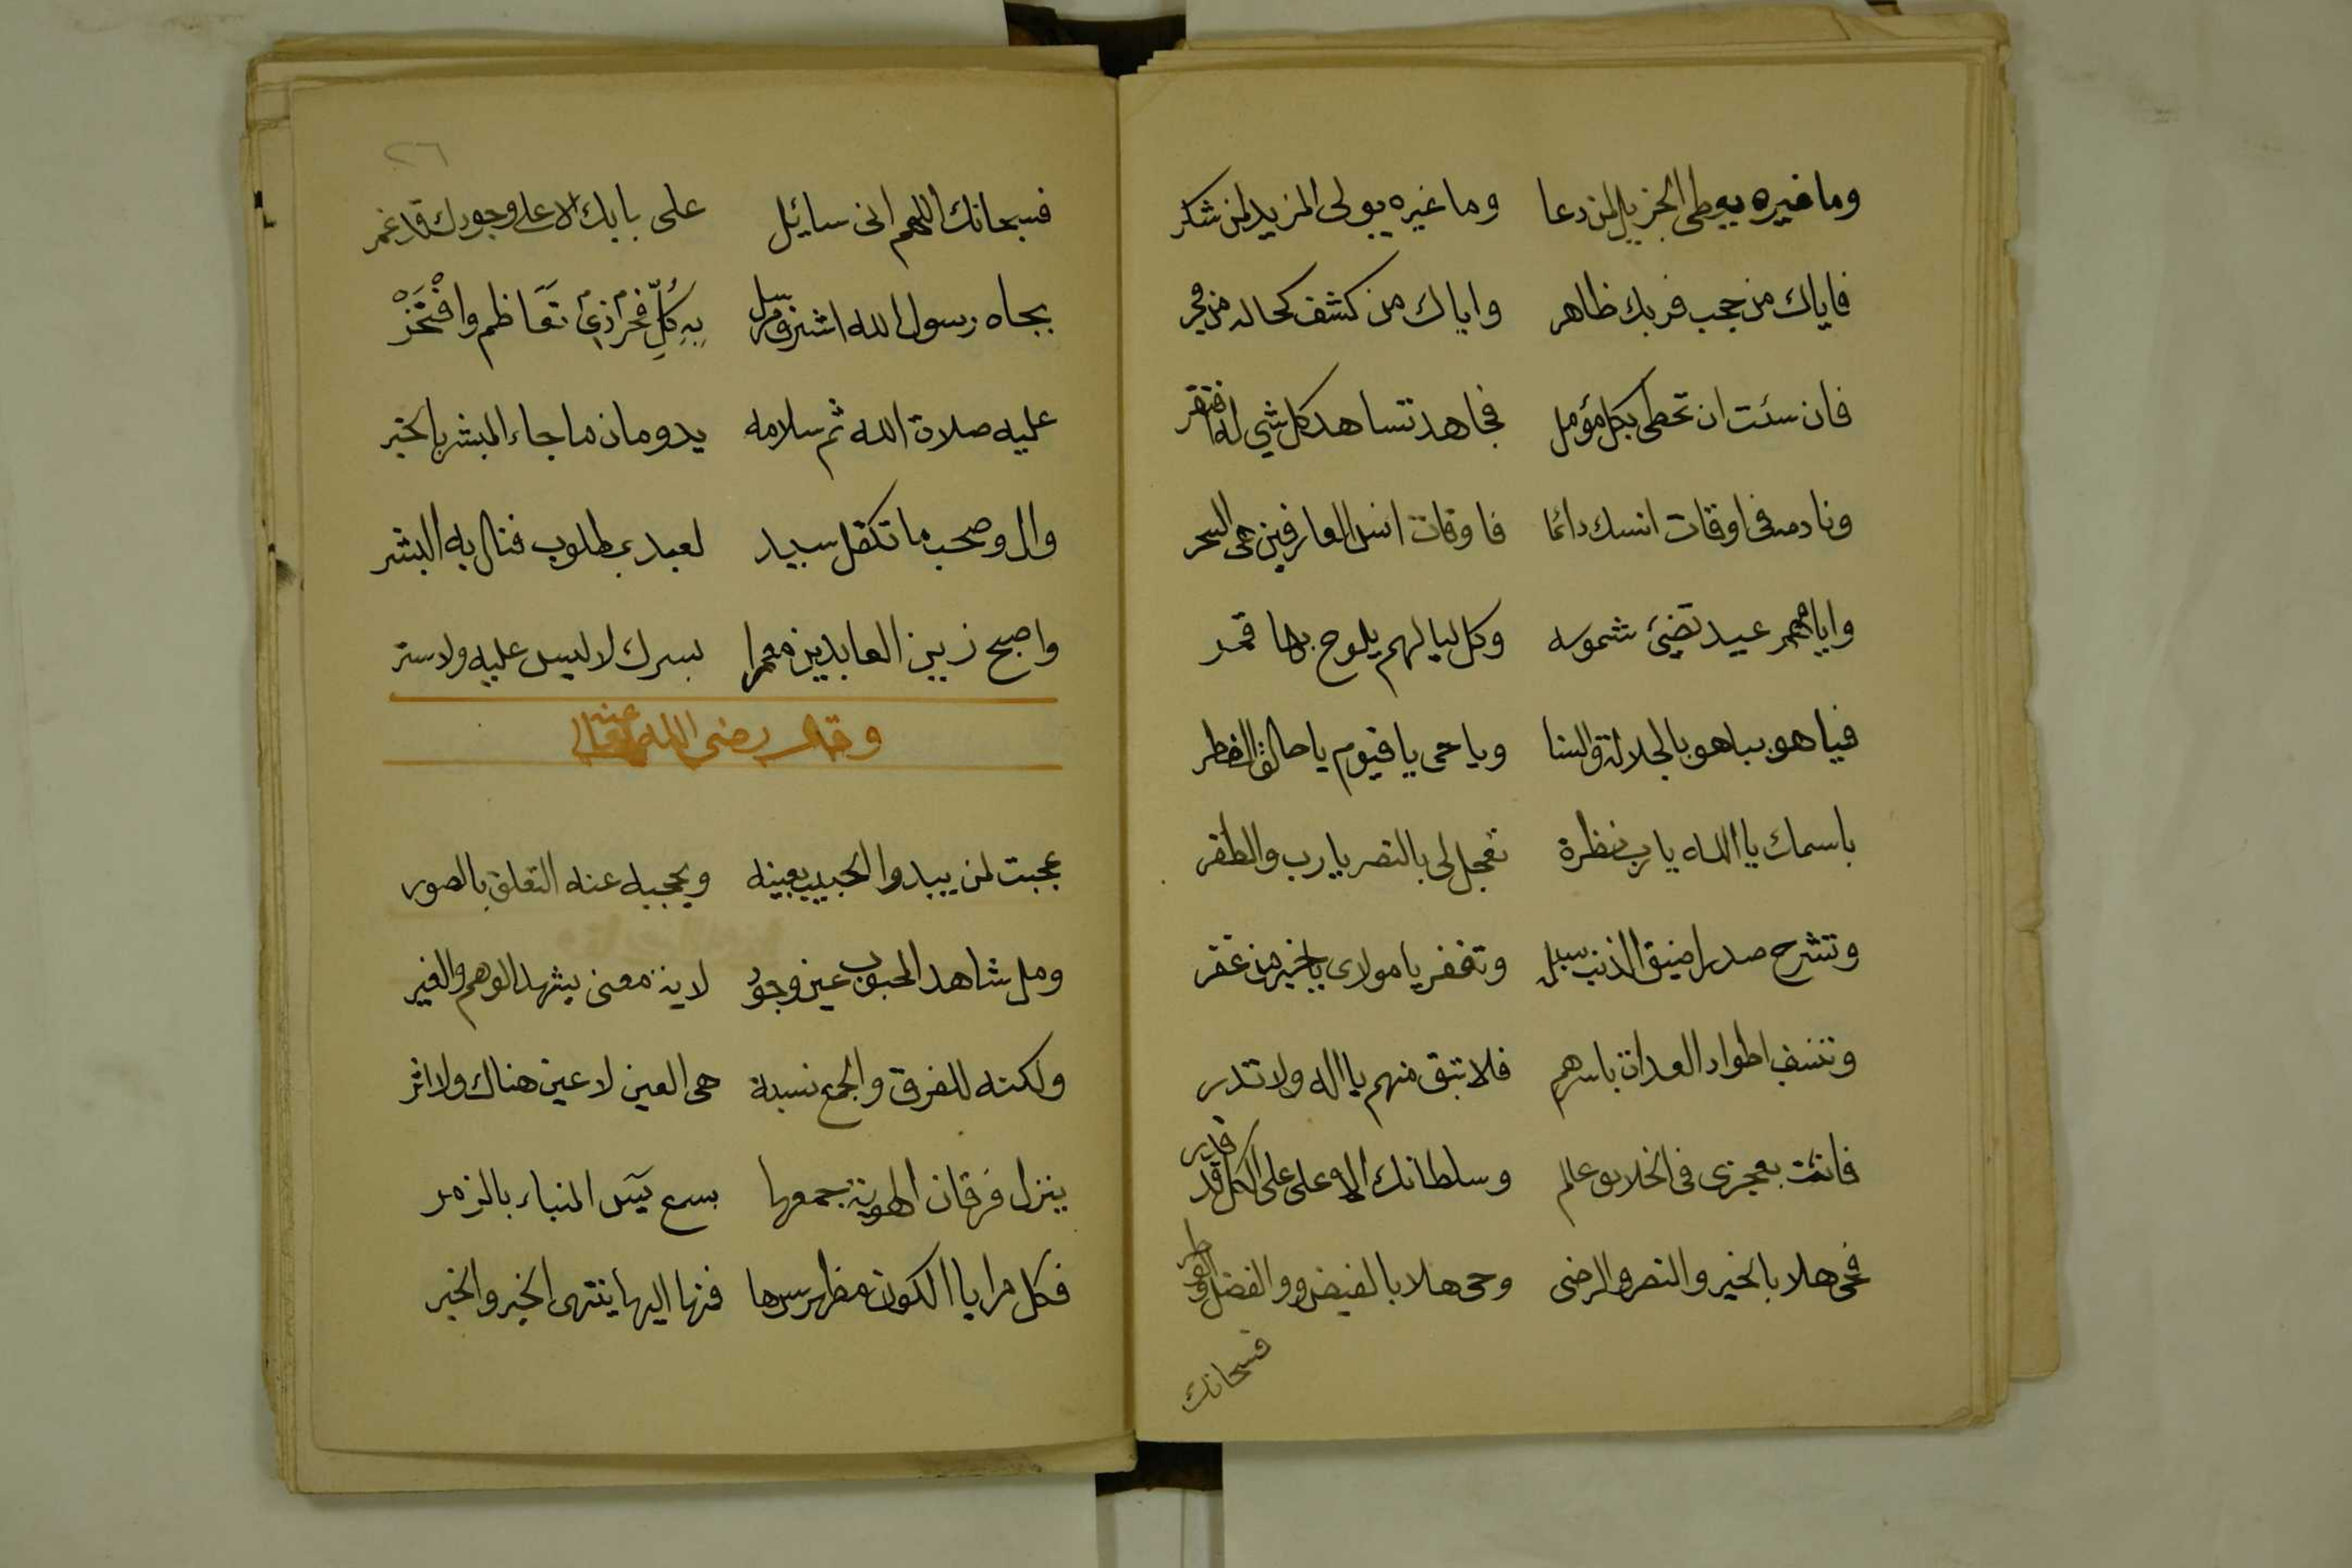 وما غيره يعطى الجزيل لمن دعا وما غيره يولى المزيد لمن شكر
فاياك من حجب فربك ظاهر واياك من كشف
فان سئت ان تحطى بكل مؤمل فجاهد تساهد كل شي له افتقر
ونادمه فى اوقات انسك دائما فاوقات انس العارفين هى السحر
وايامهم عيد تضئ شموسه وكل لياليهم يلوح بها قمر
فيا هو بباهو بالجلالة والسنا ويا حى يا قيوم يا خالق الفطر
باسمك يا الله يا رب نظرة تعجل لى بالنصر يا رب والظفر
وتشرح صدرا ضيق الذنب سبله وتغفر يا مولاى يا خير من غفر
وتنسف اطواد العدات باسرهم فلا تبق منهم يا اله ولا تدر
فانت بعجزى فى الخلايق عالم وسلطانك الاعلى على الكل قد قدر
فحى هلا بالخير والنصر والرضى وحى هلا بالفيض والفضل
فسبحانك
٢٦
فسبحانك اللهم انى سايئل على بابك الاعلى وجودك قد غمر
بجاه رسول الله اشرف مرسل به كل فخر تعاظم وافتخر
عليه صلاة الله ثم سلامه يدومان ما جاء المبشر بالخبر
وال وصحب ما تكفل سيد لعبد بمطلوب فنال به البشر
واصبح زين العابدين معمرا بسرك لا لبس عليه ولا ستر
وقال رضى الله تعالى عنه
عجبت لمن يبدوا الحبيب بعينه ويحجبه عنه التعلق بالصور
ومل شاهد المحبوب عين وجود لاية معنى يشهد الوهم والغير
ولكنه للفرق والجمع نسبة هى العين لا عين هناك ولا اثر
ينزل فرقان الهوية جمعها بسبع يس النباء بالزمر
فكل مرايا الكون مظهر سرها فمنها اليها ينتهى الخبر والخبر